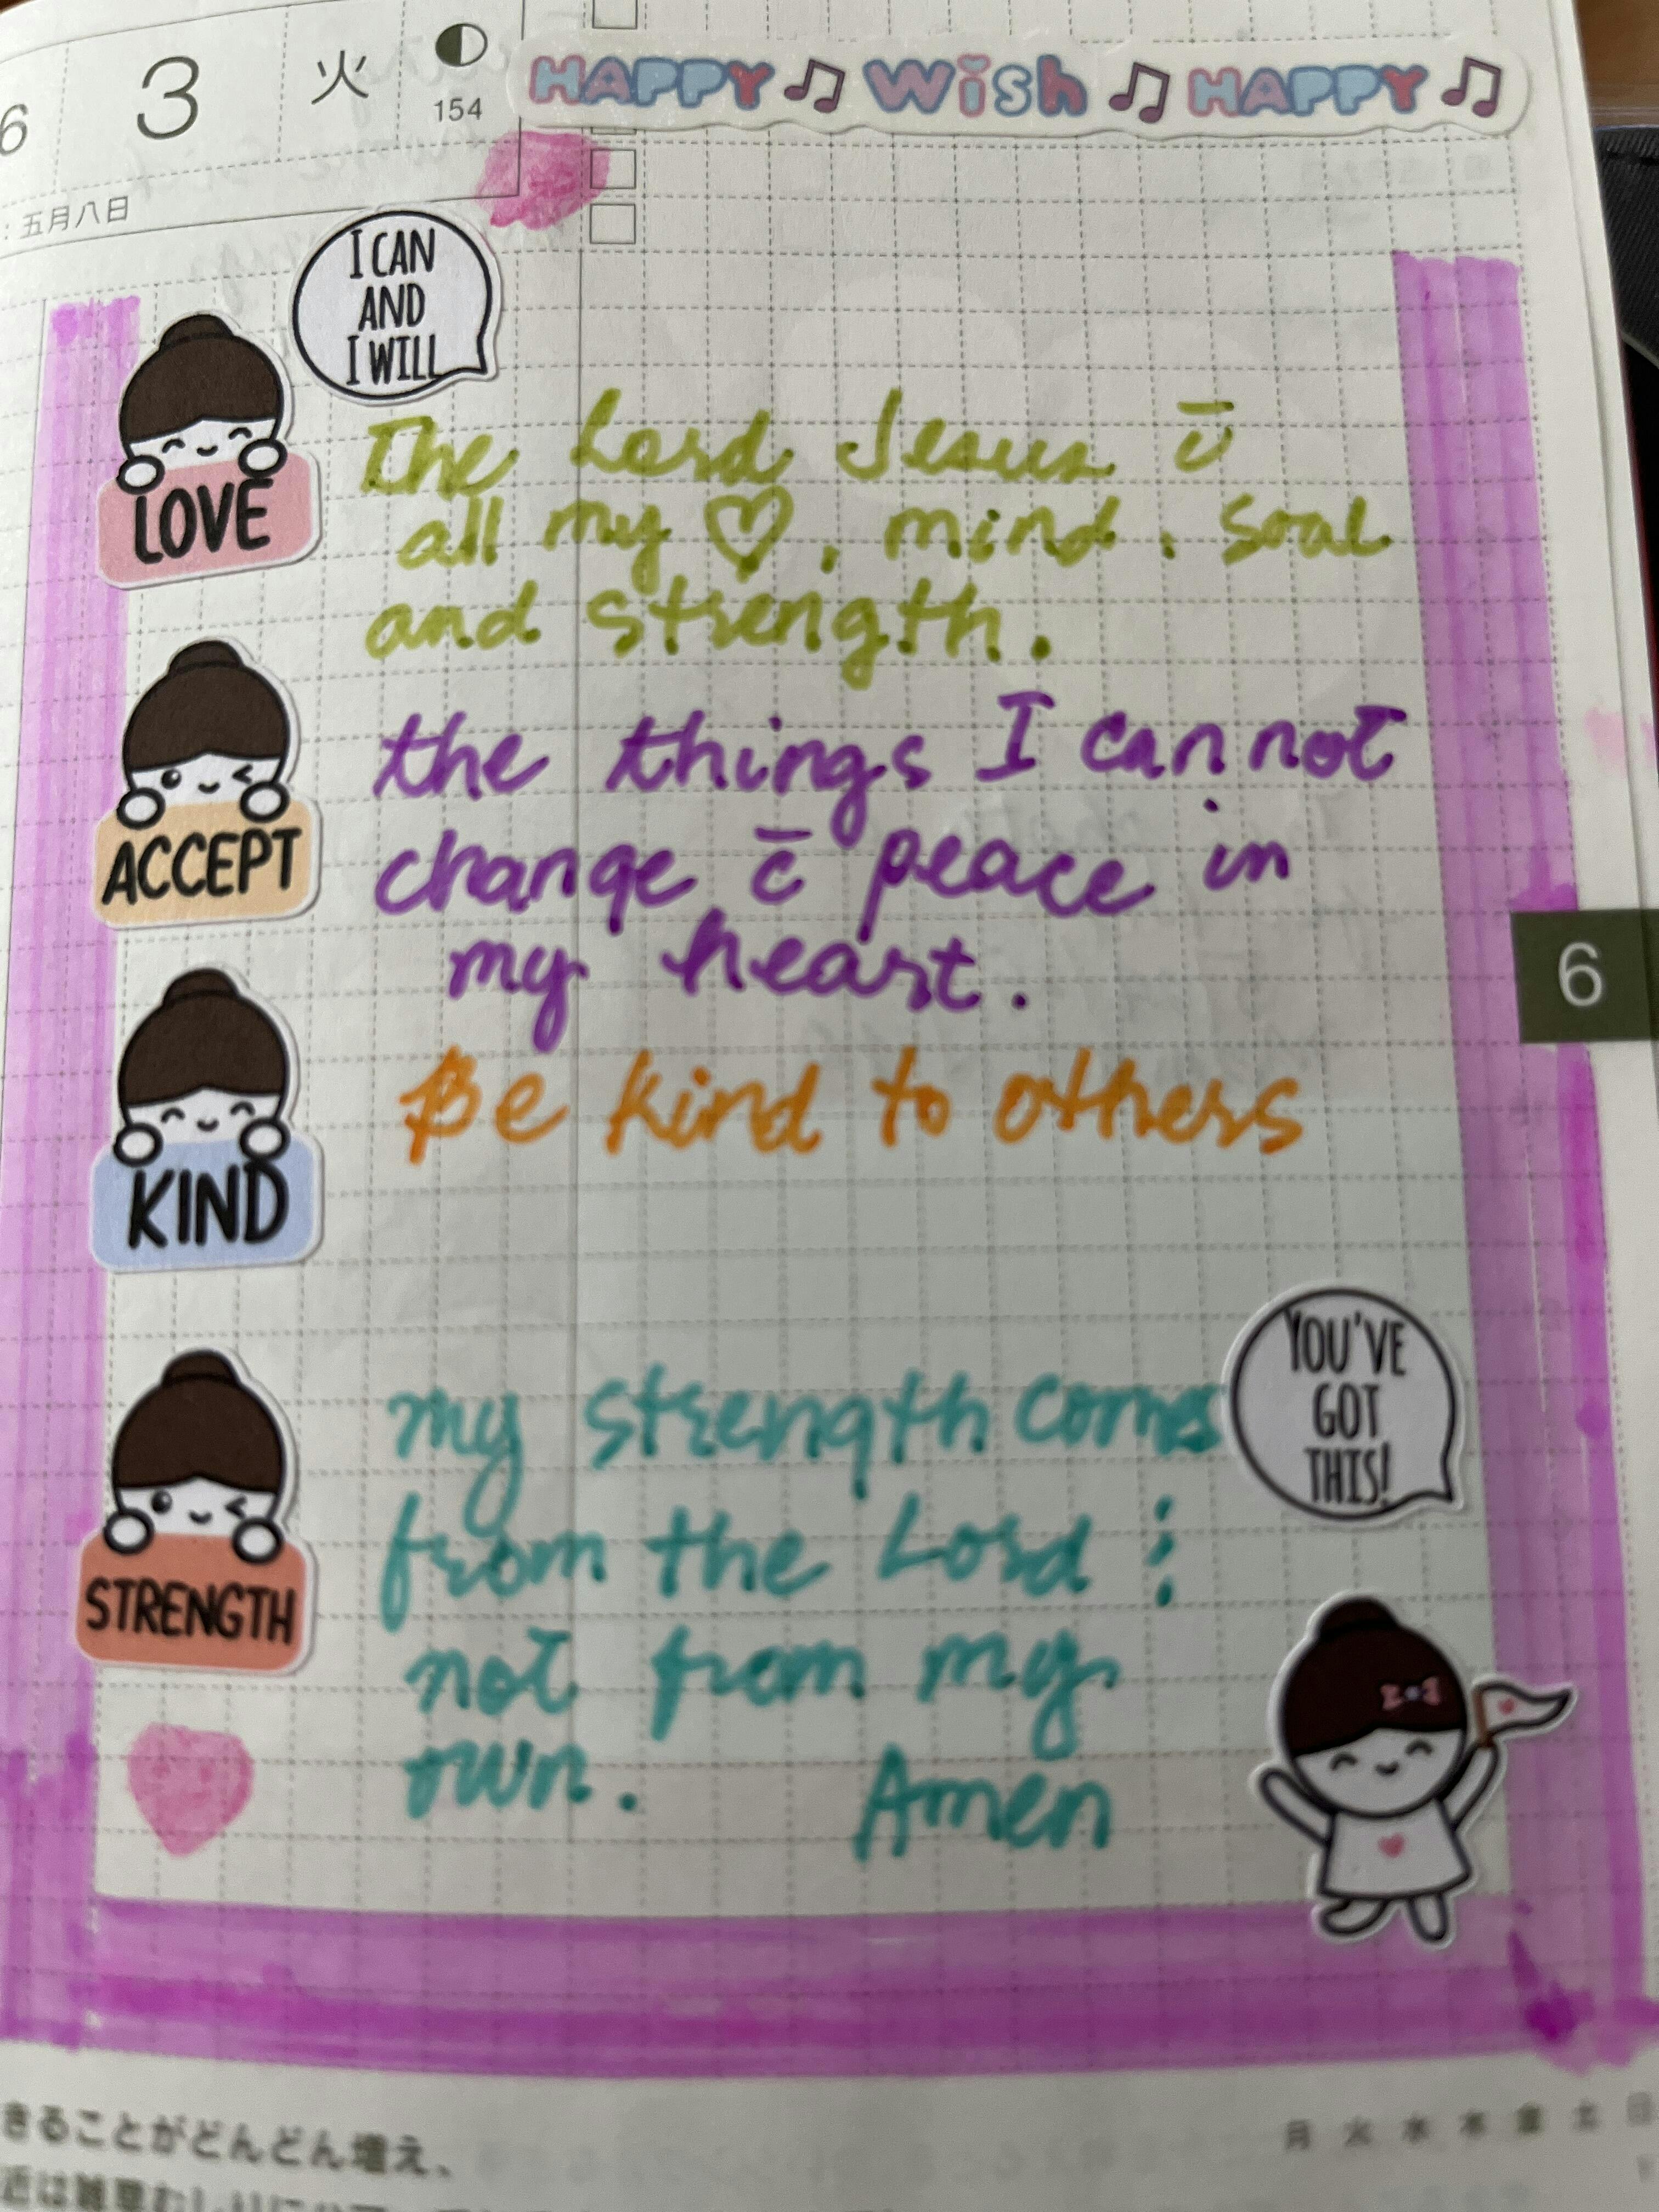 6 3 火 154
HAPPY♫Wish♫HAPPY♫
: 五月八日
I CAN
AND
I WILL
LOVE
The Lord Jesus c̄
all my ♡, mind, soul
and strength.
ACCEPT
the things I cannot
change c̄ peace in
my heart.
6
KIND
Be kind to others
STRENGTH
my strength comes
from the Lord :
not from my
own. Amen
YOU'VE
GOT
THIS!
きることがどんどん増え、
月 火 水 木 金 土 日